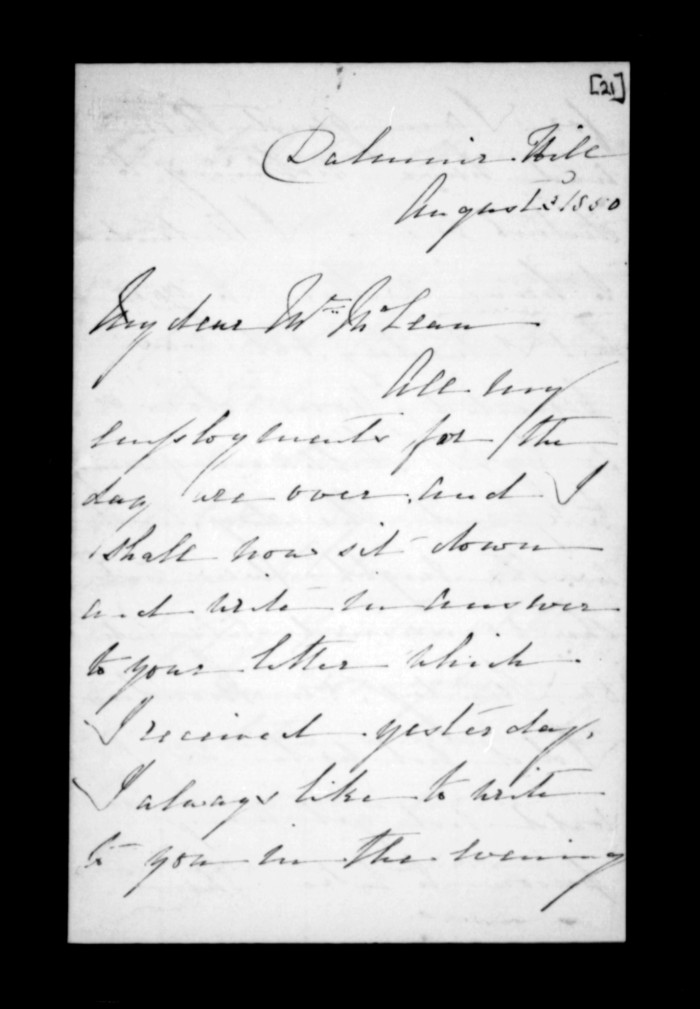 [21]
Dalmuir Hill
August 3 1850
My dear Mr McLean
All my
employments for the
day are over and I
shall now sit down
and write in answer
to your letter which
I received yesterday.
I always like to write
to you in the evening